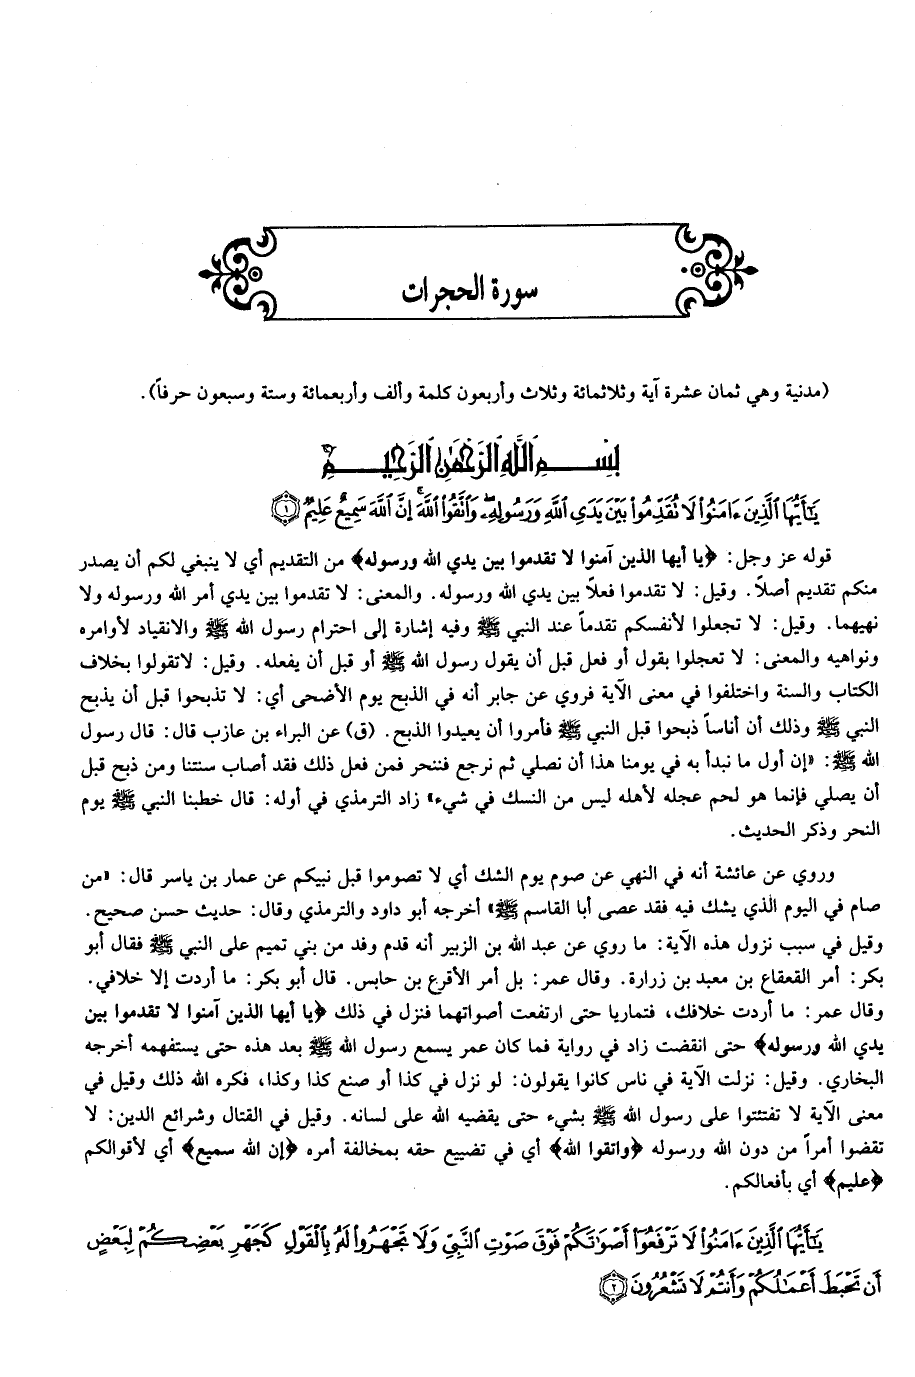 سورة الحجرات
(مدنية وهي ثمان عشرة آية وثلاثمائة وثلاث وأربعون كلمة وألف وأربعمائة وستة وسبعون حرفاً).
بِسْمِ اللَّهِ الرَّحْمَٰنِ الرَّحِيمِ
يَٰٓأَيُّهَا ٱلَّذِينَ ءَامَنُوا۟ لَا تُقَدِّمُوا۟ بَيْنَ يَدَىِ ٱللَّهِ وَرَسُولِهِۦ ۖ وَٱتَّقُوا۟ ٱللَّهَ ۚ إِنَّ ٱللَّهَ سَمِيعٌ عَلِيمٌ ﴿١﴾
قوله عز وجل: ﴿يا أيها الذين آمنوا لا تقدموا بين يدي الله ورسوله﴾ من التقديم أي لا ينبغي لكم أن يصدر
منكم تقديم أصلاً. وقيل: لا تقدموا فعلاً بين يدي الله ورسوله. والمعنى: لا تقدموا بين يدي أمر الله ورسوله ولا
نهيهما. وقيل: لا تجعلوا لأنفسكم تقدماً عند النبي ﷺ وفيه إشارة إلى احترام رسول الله ﷺ والانقياد لأوامره
ونواهيه والمعنى: لا تعجلوا بقول أو فعل قبل أن يقول رسول الله ﷺ أو قبل أن يفعله. وقيل: لاتقولوا بخلاف
الكتاب والسنة واختلفوا في معنى الآية فروي عن جابر أنه في الذبح يوم الأضحى أي: لا تذبحوا قبل أن يذبح
النبي ﷺ وذلك أن أناساً ذبحوا قبل النبي ﷺ فأمروا أن يعيدوا الذبح. (ق) عن البراء بن عازب قال: قال رسول
الله ﷺ: «إن أول ما نبدأ به في يومنا هذا أن نصلي ثم نرجع فننحر فمن فعل ذلك فقد أصاب سنتنا ومن ذبح قبل
أن يصلي فإنما هو لحم عجله لأهله ليس من النسك في شيء» زاد الترمذي في أوله: قال خطبنا النبي ﷺ يوم
النحر وذكر الحديث.
وروي عن عائشة أنه في النهي عن صوم يوم الشك أي لا تصوموا قبل نبيكم عن عمار بن ياسر قال: «من
صام في اليوم الذي يشك فيه فقد عصى أبا القاسم ﷺ» أخرجه أبو داود والترمذي وقال: حديث حسن صحيح.
وقيل في سبب نزول هذه الآية: ما روي عن عبد الله بن الزبير أنه قدم وفد من بني تميم على النبي ﷺ فقال أبو
بكر: أمر القعقاع بن معبد بن زرارة. وقال عمر: بل أمر الأقرع بن حابس. قال أبو بكر: ما أردت إلا خلافي.
وقال عمر: ما أردت خلافك، فتماريا حتى ارتفعت أصواتهما فنزل في ذلك ﴿يا أيها الذين آمنوا لا تقدموا بين
يدي الله ورسوله﴾ حتى انقضت زاد في رواية فما كان عمر يسمع رسول الله ﷺ بعد هذه حتى يستفهمه أخرجه
البخاري. وقيل: نزلت الآية في ناس كانوا يقولون: لو نزل في كذا أو صنع كذا وكذا، فكره الله ذلك وقيل في
معنى الآية لا تفتئتوا على رسول الله ﷺ بشيء حتى يقضيه الله على لسانه. وقيل في القتال وشرائع الدين: لا
تقضوا أمراً من دون الله ورسوله ﴿واتقوا الله﴾ أي في تضييع حقه بمخالفة أمره ﴿إن الله سميع﴾ أي لأقوالكم
﴿عليم﴾ أي بأفعالكم.
يَٰٓأَيُّهَا ٱلَّذِينَ ءَامَنُوا۟ لَا تَرْفَعُوٓا۟ أَصْوَٰتَكُمْ فَوْقَ صَوْتِ ٱلنَّبِىِّ وَلَا تَجْهَرُوا۟ لَهُۥ بِٱلْقَوْلِ كَجَهْرِ بَعْضِكُمْ لِبَعْضٍ
أَن تَحْبَطَ أَعْمَٰلُكُمْ وَأَنتُمْ لَا تَشْعُرُونَ ﴿٢﴾